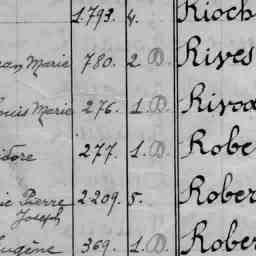 1.793. 4. Rioch
ean Marie 780. 2. D. Rives
ouis Marie 276. 1. D. Rivoa
idore 277. 1. D. Rober
ie Pierre 2209. 5. Rober
Joseph
Eugène 369. 1. D. Rober